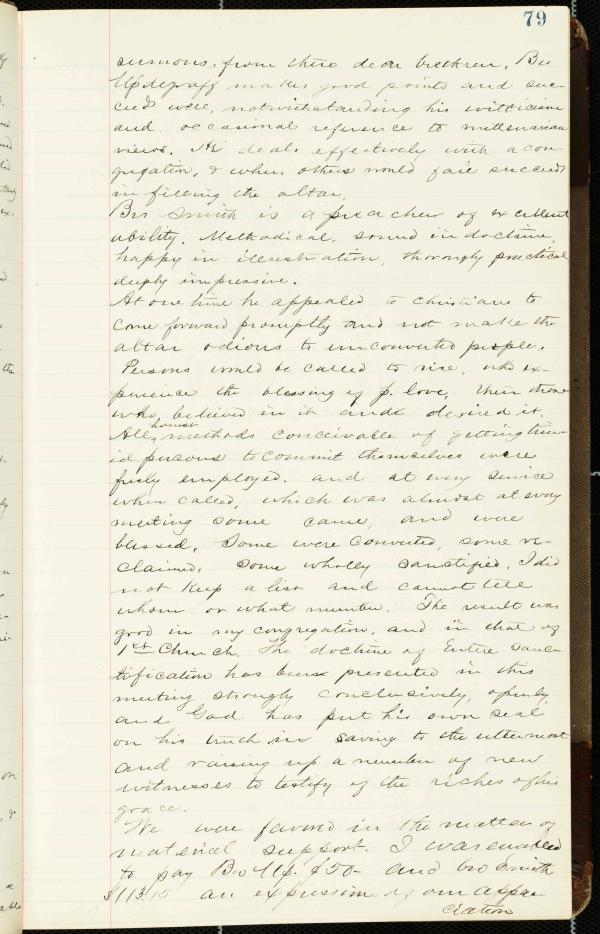 79
sermons, from these dear brethren. Bro
Updegraff makes good points and suc-
ceeds well, notwithstanding his witticisms
and occasional reference to millenarian
views. He deals effectively with a con-
gregation, & when others would fail succeeds
in filling the altar.
Bro Smith is a preacher of excellent
ability. Methodical, sound in doctrine,
happy in illustration, thorougly practical
deeply impressive.
At one time he appealed to Christians to
come forward promptly and not make the
altar odious to unconverted people.
Persons would be called to rise, who ex-
perience the blessing of p. love, then those
who believed in it and desired it.
All honest methods conceivable of getting tim-
id persons to commit themselves were
freely employed. and at every service
when called, which was almost at every
meeting some came, and were
blessed. Some were converted, some re-
claimed, some wholly sanctified. I did
not keep a list and cannot tell
whom or what number. The result was
good in my congregation, and in that of
1st Church. The doctrine of Entire Sanc-
tification has been presented in this
meeting strongly conclusively, openly,
and God has put his own seal
on his truth in saving to the uttermost
and raising up a number of new
witnesses to testify of the riches of his
grace.
We were favored in the matter of
material support. I was enabled
to pay Bro Up. $50- and bro Smith
$113.15 an expression of our appre
ciation